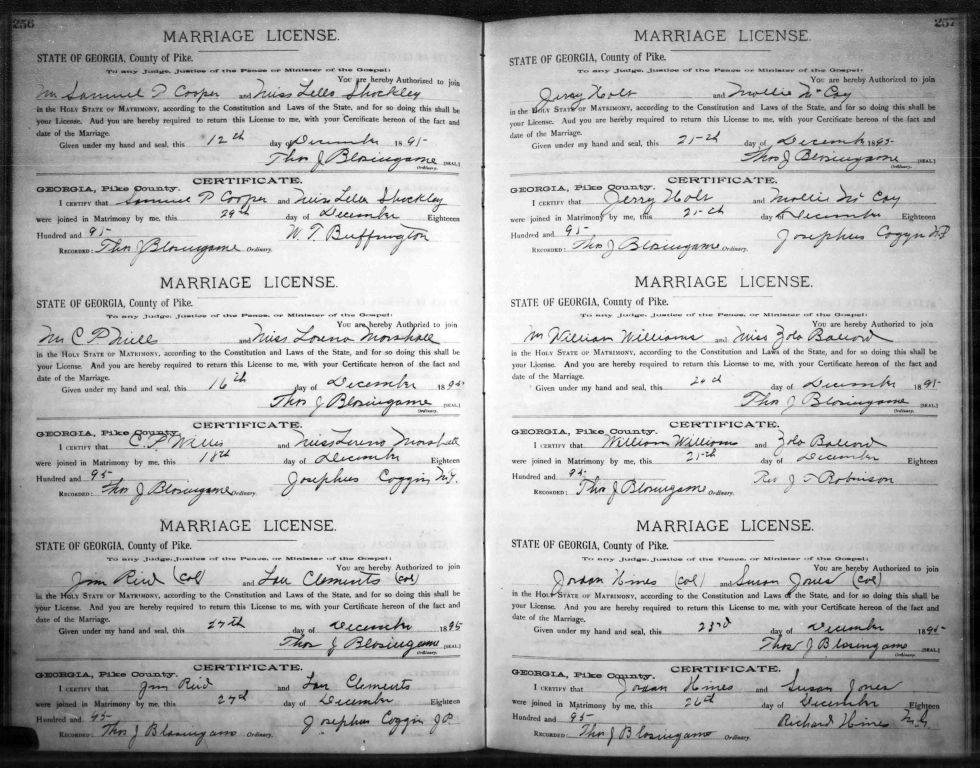 256
MARRIAGE LICENSE.
STATE OF GEORGIA, County of Pike.
To any Judge, Justice of the Peace or Minister of the Gospel:
You are hereby Authorized to join
Mr Samuel P Cooper and Miss Lella Shockley
in the HOLY STATE OF MATRIMONY, according to the Constitution and Laws of the State, and for so doing this shall be
your License. And you are hereby required to return this License to me, with your Certificate hereon of the fact and
date of the Marriage.
Given under my hand and seal, this 12th day of December 1895
Thos J Blasingame [SEAL.]
Ordinary.
CERTIFICATE.
GEORGIA, Pike County.
I CERTIFY that Samuel P Cooper and Miss Lella Shockley
were joined in Matrimony by me, this 29th day of December Eighteen
Hundred and 95 W. T. Buffington
RECORDED: Thos J Blasingame Ordinary.
MARRIAGE LICENSE.
STATE OF GEORGIA, County of Pike.
To any Judge, Justice of the Peace or Minister of the Gospel:
You are hereby Authorized to join
Mr C P and Miss Lorena Marshall
in the HOLY STATE OF MATRIMONY, according to the Constitution and Laws of the State, and for so doing this shall be
your License. And you are hereby required to return this License to me, with your Certificate hereon of the fact and
date of the Marriage.
Given under my hand and seal, this 16th day of December 1895
Thos J Blasingame [SEAL.]
Ordinary.
CERTIFICATE.
GEORGIA, Pike County.
I CERTIFY that C. P. Willis and Miss Loreno Marshall
were joined in Matrimony by me, this 18th day of December Eighteen
Hundred and 95 Josephus Coggin
RECORDED: Thos J Blasingame Ordinary.
MARRIAGE LICENSE.
STATE OF GEORGIA, County of Pike.
To any Judge, Justice of the Peace or Minister of the Gospel:
You are hereby Authorized to join
Jim Reid (col) and Lou Clements (col)
in the HOLY STATE OF MATRIMONY, according to the Constitution and Laws of the State, and for so doing this shall be
your License. And you are hereby required to return this License to me, with your Certificate hereon of the fact and
date of the Marriage.
Given under my hand and seal, this 27th day of December 1895
Thos J Blasingame [SEAL.]
Ordinary.
CERTIFICATE.
GEORGIA, Pike County.
I CERTIFY that Jim Reid and Lou Clements
were joined in Matrimony by me, this day of December Eighteen
Hundred and 95 Josephus Coggin J P.
RECORDED: Thos J Blasingame Ordinary.
257
MARRIAGE LICENSE.
STATE OF GEORGIA, County of Pike.
To any Judge, Justice of the Peace or Minister of the Gospel:
You are hereby Authorized to join
Jerry Holt and Mollie McCoy
in the HOLY STATE OF MATRIMONY, according to the Constitution and Laws of the State, and for so doing this shall be
your License. And you are hereby required to return this License to me, with your Certificate hereon of the fact and
date of the Marriage.
Given under my hand and seal, this 25th day of December 1895
Thos J Blasingame [SEAL.]
Ordinary.
CERTIFICATE.
GEORGIA, Pike County.
I CERTIFY that Jerry Holt and Mollie McCoy
were joined in Matrimony by me, this 25th day of December Eighteen
Hundred and 95 Josephus Coggin
RECORDED: Thos J Blasingame Ordinary.
MARRIAGE LICENSE.
STATE OF GEORGIA, County of Pike.
To any Judge, Justice of the Peace or Minister of the Gospel:
You are hereby Authorized to join
Mr William Williams and Miss Zolo Ballard
in the HOLY STATE OF MATRIMONY, according to the Constitution and Laws of the State, and for so doing this shall be
your License. And you are hereby required to return this License to me, with your Certificate hereon of the fact and
date of the Marriage.
Given under my hand and seal, this 24th day of December 1895
Thos J Blasingame [SEAL.]
Ordinary.
CERTIFICATE.
GEORGIA, Pike County.
I CERTIFY that William Williams and Zolo Ballard
were joined in Matrimony by me, this 25th day of December Eighteen
Hundred and 95 Rev J T Robinson
RECORDED: Thos J Blasingame Ordinary.
MARRIAGE LICENSE.
STATE OF GEORGIA, County of Pike.
To any Judge, Justice of the Peace or Minister of the Gospel:
You are hereby Authorized to join
Jordan Hines (col) and Susan Jones (col)
in the HOLY STATE OF MATRIMONY, according to the Constitution and Laws of the State, and for so doing this shall be
your License. And you are hereby required to return this License to me, with your Certificate hereon of the fact and
date of the Marriage.
Given under my hand and seal, this 23rd day of December 1895
Thos J Blasingame [SEAL.]
Ordinary.
CERTIFICATE.
GEORGIA, Pike County.
I CERTIFY that Jordan Hines and Susan Jones
were joined in Matrimony by me, this 26th day of December Eighteen
Hundred and 95 Richard Hines M.G.
RECORDED: Thos J Blasingame Ordinary.